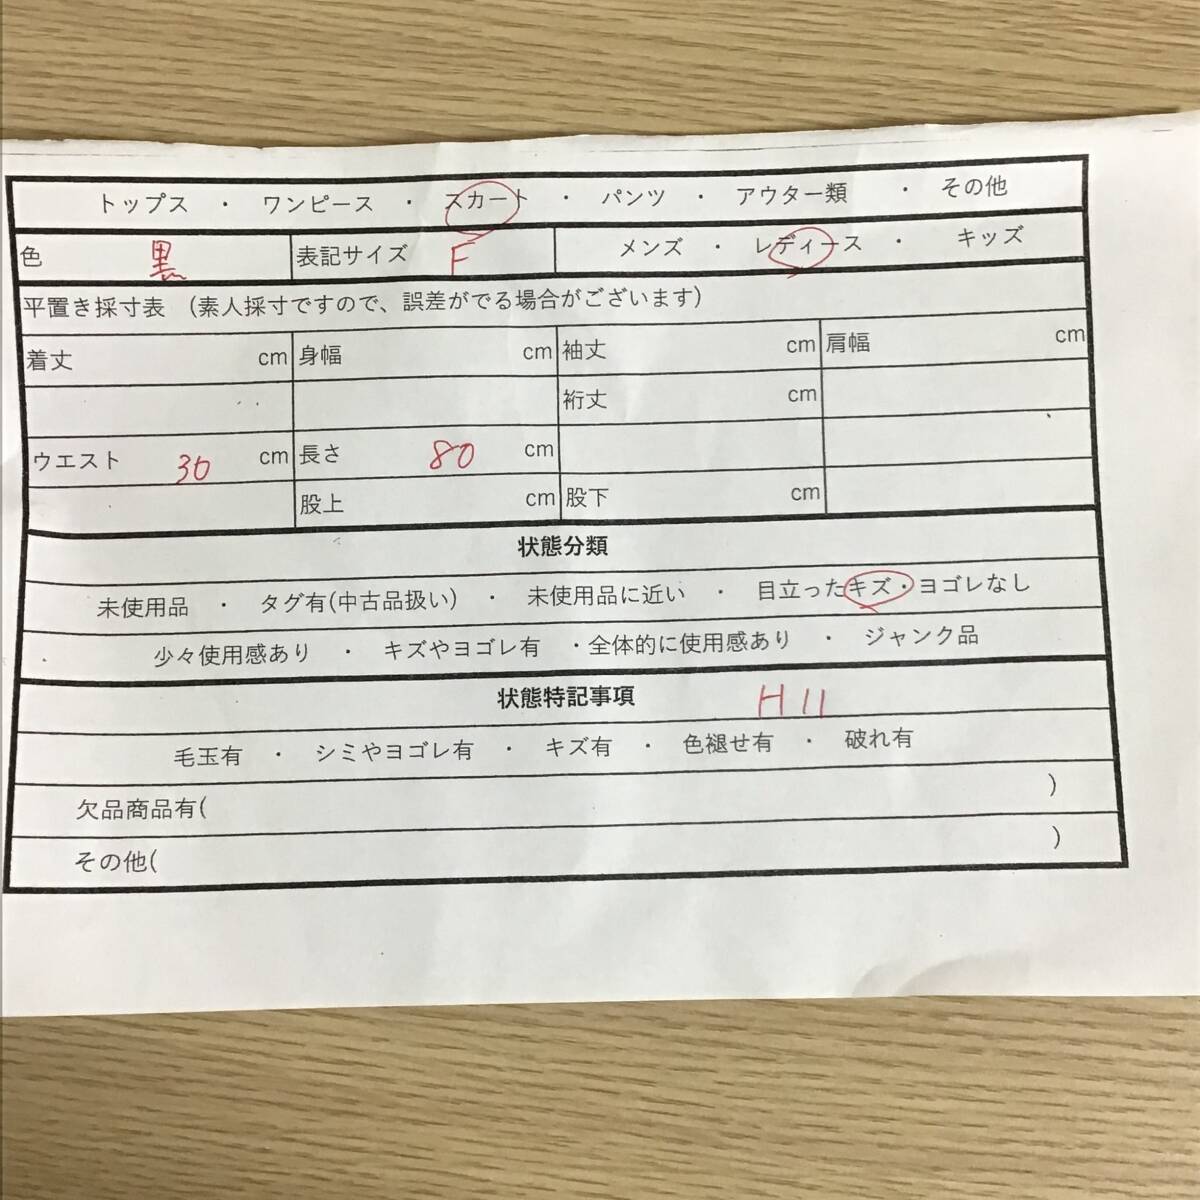 トップス ・ ワンピース ・ スカート ・ パンツ ・ アウター類 ・ その他
色 黒 表記サイズ F メンズ ・ レディース ・ キッズ
平置き採寸表 (素人採寸ですので、誤差がでる場合がございます)
着丈 cm 身幅 cm 袖丈 cm 肩幅 cm
裄丈 cm
ウエスト 30 cm 長さ 80 cm
股上 cm 股下 cm
状態分類
未使用品 ・ タグ有(中古品扱い) ・ 未使用品に近い ・ 目立ったキズ・ヨゴレなし
少々使用感あり ・ キズやヨゴレ有 ・全体的に使用感あり ・ ジャンク品
状態特記事項 H11
毛玉有 ・ シミやヨゴレ有 ・ キズ有 ・ 色褪せ有 ・ 破れ有
欠品商品有( )
その他( )